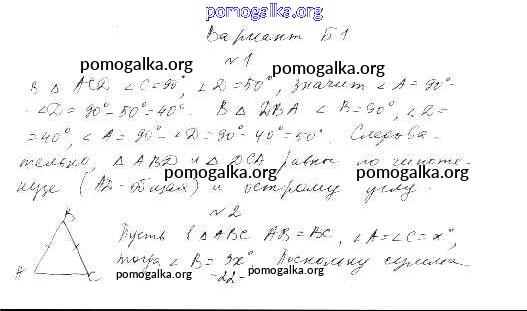 pomogalka.org
Вариант Б1
№1
pomogalka.org pomogalka.org
В △ ACD ∠C=90°, ∠D=50°, значит ∠A=90°-
-∠D=90°-50°=40°. В △ DBA ∠B=90°, ∠D=
=40°, ∠A=90°-∠D=90°-40°=50°. Следова-
тельно, △ ABD и △ DCA равны по гипоте-
pomogalka.org pomogalka.org
нузе (AD-общая) и острому углу.
№2
B
Пусть в △ABC AB=BC, ∠A=∠C=x°,
тогда ∠B=3x°. Поскольку сумма
A C
pomogalka.org pomogalka.org
-22-